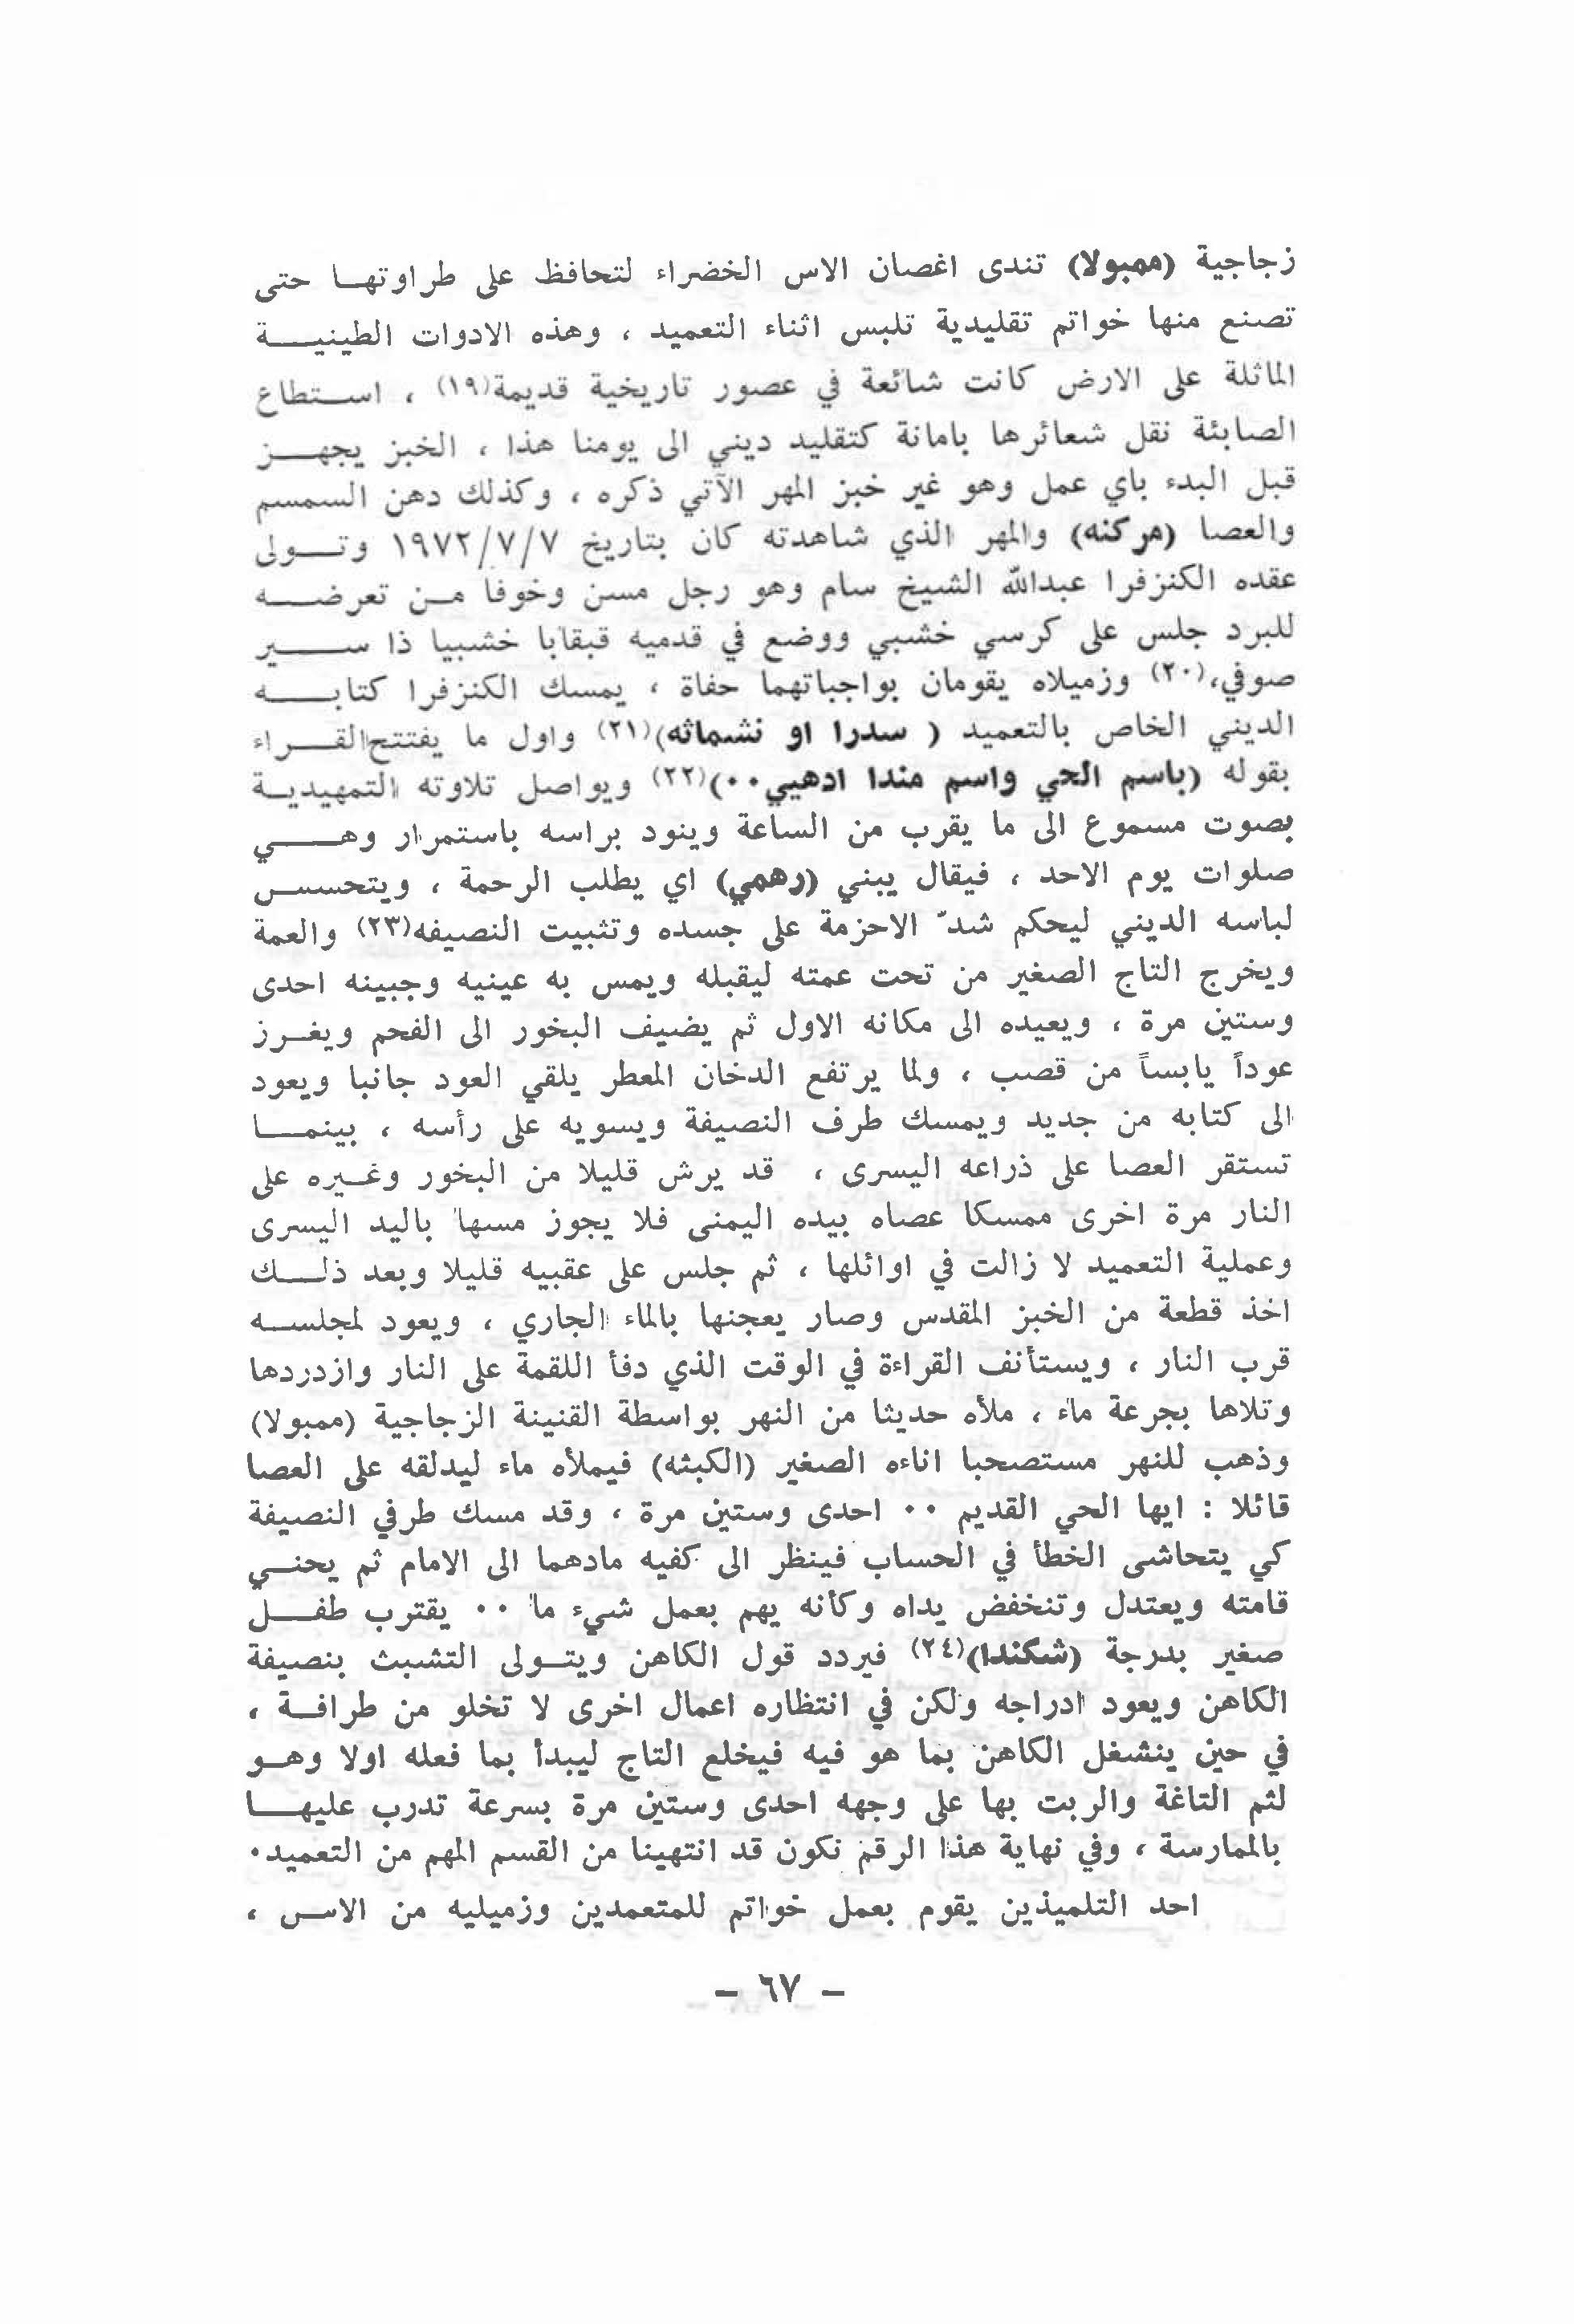 زجاجية (ممبولا) تندى اغصان الاس الخضراء لتحافظ على طراوتها حتى
تصنع منها خواتم تقليدية تلبس اثناء التعميد ، وهذه الادوات الطينية
الماثلة على الارض كانت شائعة في عصور تاريخية قديمة(١٩) ، استطاع
الصابئة نقل شعائرها بامانة كتقليد ديني الى يومنا هذا ، الخبز يجهز
قبل البدء باي عمل وهو غير خبز المهر الآتي ذكره ، وكذلك دهن السمسم
والعصا (مركنه) والمهر الذي شاهدته كان بتاريخ ١٩٧٢/٧/٧ وتولى
عقده الكنزفرا عبدالله الشيخ سام وهو رجل مسن وخوفا من تعرضه
للبرد جلس على كرسي خشبي ووضع في قدميه قبقابا خشبيا ذا سير
صوفي،(٢٠) وزميلاه يقومان بواجباتهما حفاة ، يمسك الكنزفرا كتابه
الديني الخاص بالتعميد ( سدرا او نشماثه)(٢١) واول ما يفتتح القراء
بقوله (باسم الحي واسم مندا ادهيي٠٠)(٢٢) ويواصل تلاوته التمهيدية
بصوت مسموع الى ما يقرب من الساعة وينود براسه باستمرار وهي
صلوات يوم الاحد ، فيقال يبني (رهمي) اي يطلب الرحمة ، ويتحسس
لباسه الديني ليحكم شدّ الاحزمة على جسده وتثبيت النصيفه(٢٣) والعمة
ويخرج التاج الصغير من تحت عمته ليقبله ويمس به عينيه وجبينه احدى
وستين مرة ، ويعيده الى مكانه الاول ثم يضيف البخور الى الفحم ويغرز
عوداً يابساً من قصب ، ولما يرتفع الدخان المعطر يلقي العود جانبا ويعود
الى كتابه من جديد ويمسك طرف النصيفة ويسويه على رأسه ، بينما
تستقر العصا على ذراعه اليسرى ، قد يرش قليلا من البخور وغيره على
النار مرة اخرى ممسكا عصاه بيده اليمنى فلا يجوز مسها باليد اليسرى
وعملية التعميد لا زالت في اوائلها ، ثم جلس على عقبيه قليلا وبعد ذلك
اخذ قطعة من الخبز المقدس وصار يعجنها بالماء الجاري ، ويعود لمجلسه
قرب النار ، ويستأنف القراءة في الوقت الذي دفأ اللقمة على النار وازدردها
وتلاها بجرعة ماء ، ملأه حديثا من النهر بواسطة القنينة الزجاجية (ممبولا)
وذهب للنهر مستصحبا اناءه الصغير (الكبثه) فيملأه ماء ليدلقه على العصا
قائلا : ايها الحي القديم ٠٠ احدى وستين مرة ، وقد مسك طرفي النصيفة
كي يتحاشى الخطأ في الحساب فينظر الى كفيه مادهما الى الامام ثم يحني
قامته ويعتدل وتنخفض يداه وكأنه يهم بعمل شيء ما ٠٠ يقترب طفل
صغير بدرجة (شكندا)(٢٤) فيردد قول الكاهن ويتولى التشبث بنصيفة
الكاهن ويعود ادراجه ولكن في انتظاره اعمال اخرى لا تخلو من طرافة ،
في حين ينشغل الكاهن بما هو فيه فيخلع التاج ليبدأ بما فعله اولا وهو
لثم التاغة والربت بها على وجهه احدى وستين مرة بسرعة تدرب عليها
بالممارسة ، وفي نهاية هذا الرقم نكون قد انتهينا من القسم المهم من التعميد٠
احد التلميذين يقوم بعمل خواتم للمتعمدين وزميليه من الاس ،
— ٦٧ —